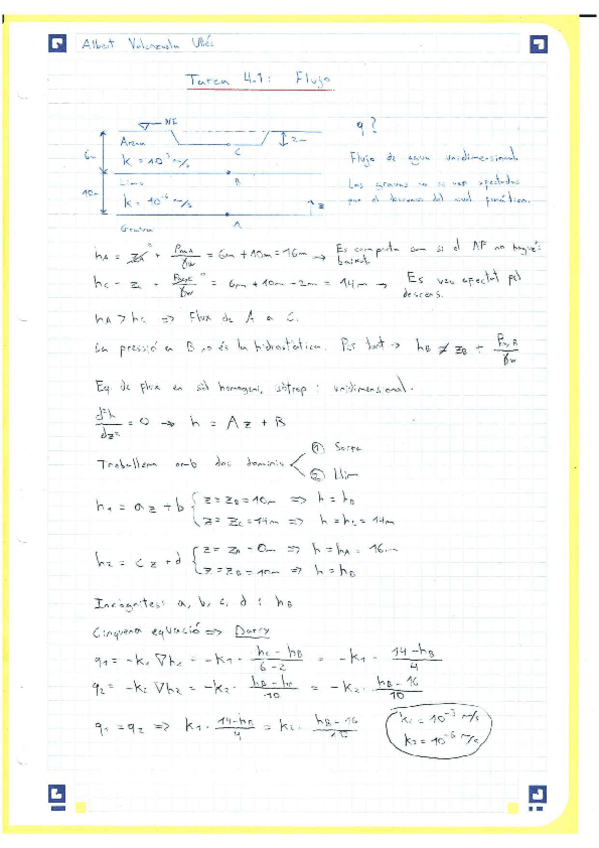 Albert Valenzuela
Tarea 4.1: Flujo
NF
q?
Arena
2m
C
6m
K = 10⁻³ m/s
Flujo de agua unidimensional
B
Limo
Las gravas no se ven afectadas
10m
K = 10⁻⁶ m/s
z
por el descenso del nivel freático.
A
Grava
hA = zA⁰ + Pw,A/γw = 6m + 10m = 16m → Es comporta com si el NF no hagués baixat
hC = zC + Pw,C/γw⁰ = 6m + 10m - 2m = 14m → Es veu afectat pel descens.
hA > hC => Flux de A a C.
La pressió a B no és la hidrostàtica. Per tant → hB ≠ zB + Pw,B/γw
Eq de flux en sòl homogeni, isòtrop i unidimensional.
d²h/dz² = 0 → h = Az + B
Treballem amb dos dominis
① Sorra
② Llim
h1 = az + b { z = zB = 10m => h = hB
z = zC = 14m => h = hC = 14m
h2 = cz + d { z = zA = 0m => h = hA = 16m
z = zB = 10m => h = hB
Incògnites: a, b, c, d i hB
Cinquena equació => Darcy
q1 = -K1 ∇h1 = -K1 · (hC - hB)/(6 - 2) = -K1 · (14 - hB)/4
q2 = -K2 ∇h2 = -K2 · (hB - hA)/10 = -K2 · (hB - 16)/10
q1 = q2 => K1 · (14 - hB)/4 = K2 · (hB - 16)/10
K1 = 10⁻³ m/s
K2 = 10⁻⁶ m/s